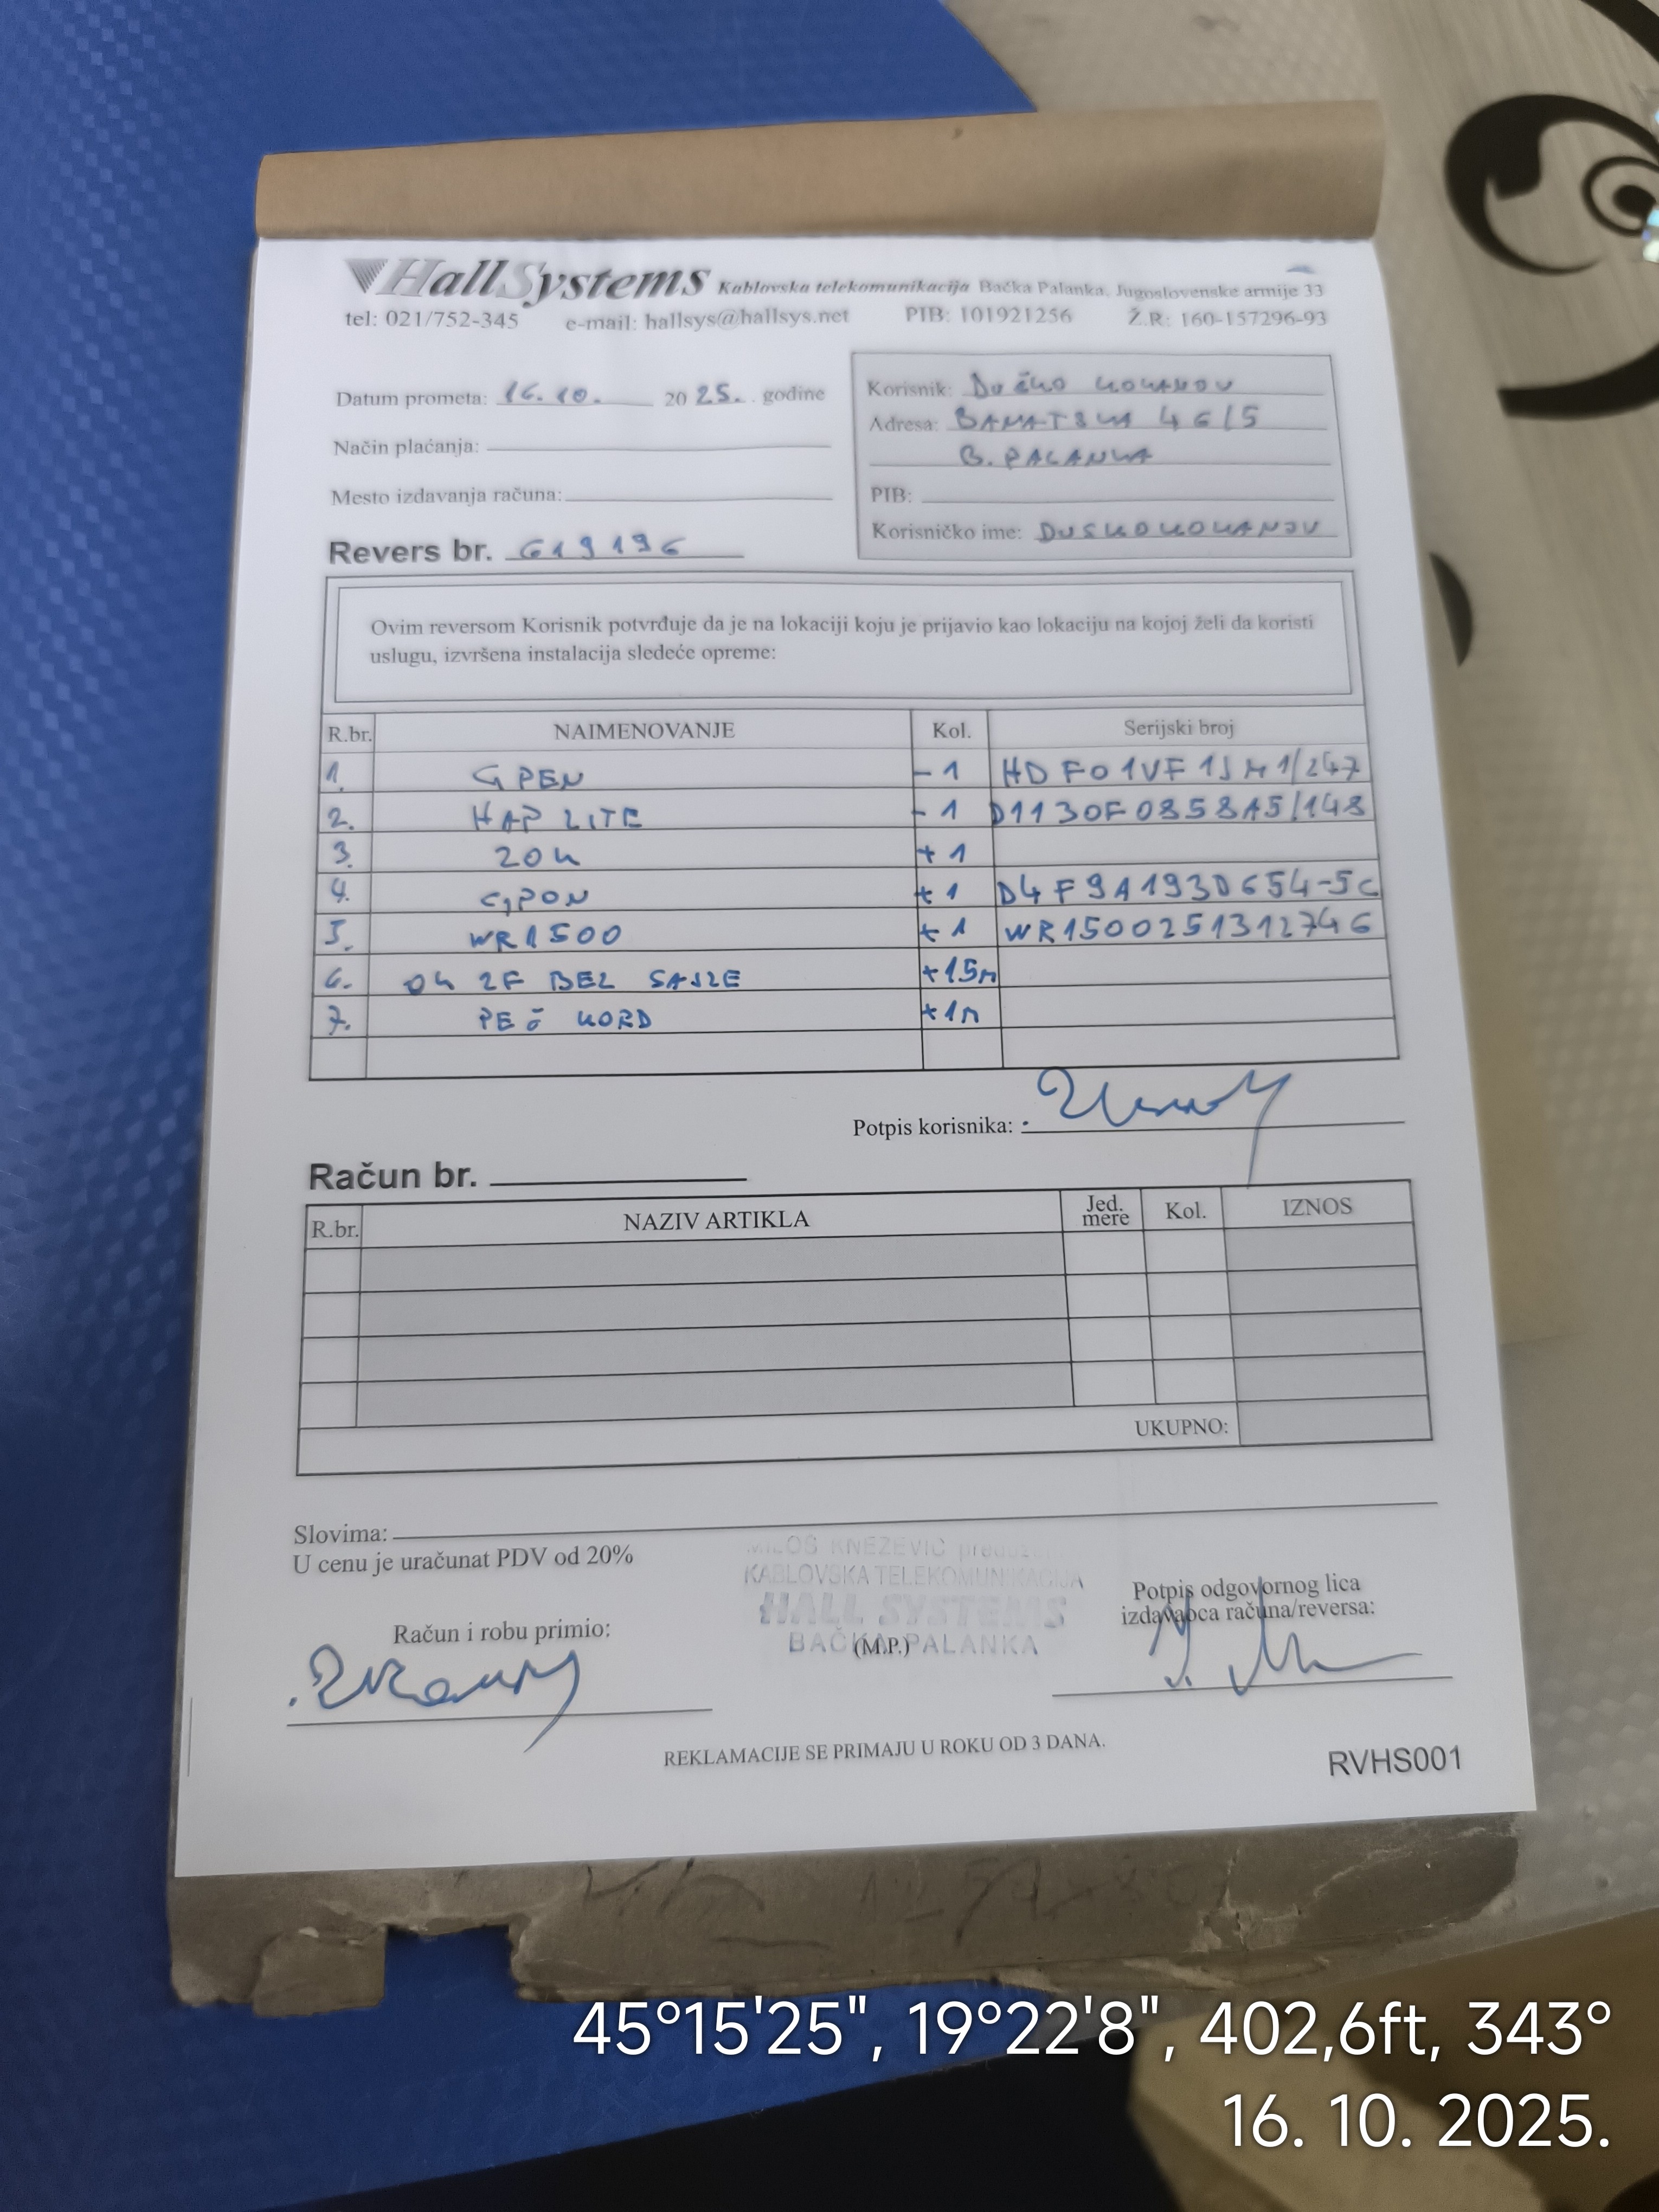 HallSystems Kablovska telekomunikacija Bačka Palanka, Jugoslovenske armije 33
tel: 021/752-345 e-mail: hallsys@hallsys.net PIB: 101921256 Ž.R: 160-157296-93
Datum prometa: 16.10. 2025. godine
Način plaćanja:
Mesto izdavanja računa:
Revers br. 619196
Korisnik: DUŠKO KOKANOV
Adresa: BANATSKA 46/5
B. PALANKA
PIB:
Korisničko ime: DUSKOKOKANOV
Ovim reversom Korisnik potvrđuje da je na lokaciji koju je prijavio kao lokaciju na kojoj želi da koristi
uslugu, izvršena instalacija sledeće opreme:
R.br. NAIMENOVANJE Kol. Serijski broj
1. GPEN -1 HDF01VF1JM1/247
2. HAP LITE -1 D1130F0858A5/148
3. ZOK +1
4. GPON +1 D4F9A193D654-5C
5. WR1500 +1 WR1500251312746
6. OK 2F BEZ SAJLE +15m
7. PEČ KORD +1m
Potpis korisnika:
Račun br.
R.br. NAZIV ARTIKLA Jed. mere Kol. IZNOS
UKUPNO:
Slovima:
U cenu je uračunat PDV od 20%
MILOŠ KNEŽEVIĆ
KABLOVSKA TELEKOMUNIKACIJA
HALL SYSTEMS
BAČKA PALANKA
(M.P.)
Račun i robu primio:
Potpis odgovornog lica
izdavaoca računa/reversa:
REKLAMACIJE SE PRIMAJU U ROKU OD 3 DANA.
RVHS001
45°15'25", 19°22'8", 402,6ft, 343°
16. 10. 2025.